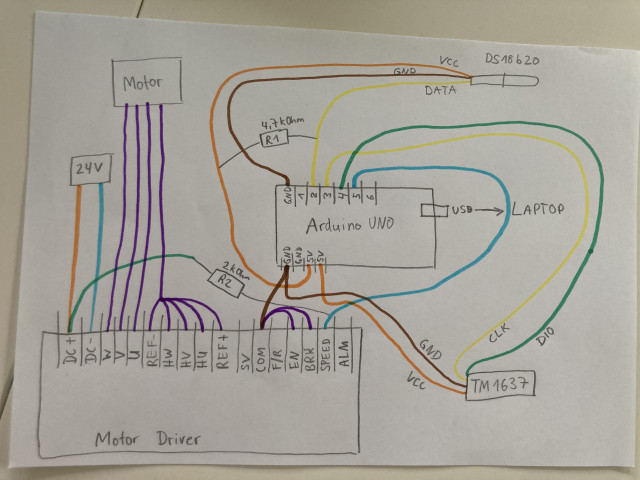 Vcc
DS18b20
GND
DATA
Motor
4,7kOhm
R1
24V
GND
1
2
3
4
5
6
Arduino UNO
USB
LAPTOP
GND
GND
5V
5V
2kOhm
R2
DC+
DC-
W
V
U
REF-
HW
HV
HU
REF+
5V
COM
F/R
EN
BRK
SPEED
ALM
GND
Vcc
CLK
DIO
TM1637
Motor Driver